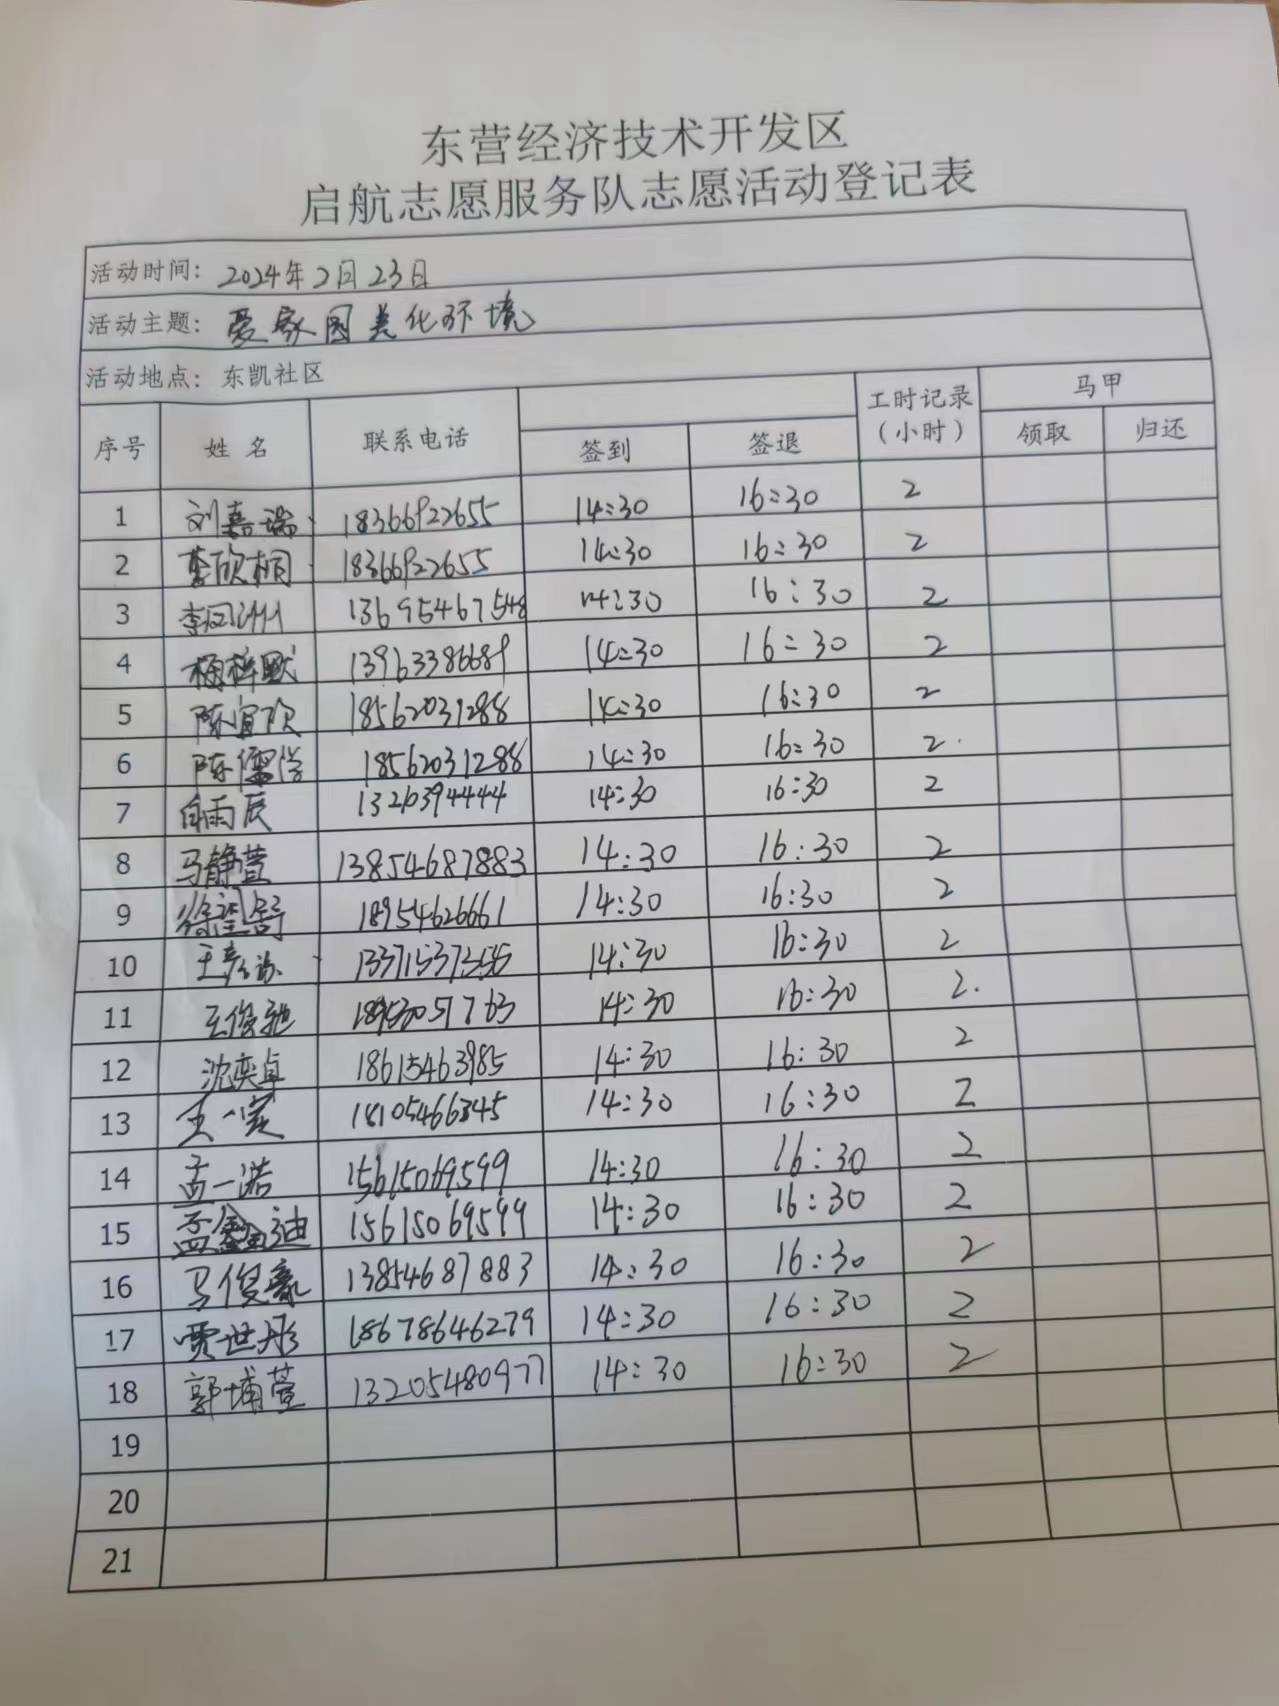 东营经济技术开发区
启航志愿服务队志愿活动登记表
活动时间：2024年2月23日
活动主题：爱家园美化环境
活动地点：东凯社区
序号 姓名 联系电话 签到 签退 工时记录（小时） 马甲 领取 归还
1 刘嘉瑞 18366922655 14:30 16:30 2
2 董欣桐 18366922655 14:30 16:30 2
3 13695467548 14:30 16:30 2
4 13963386689 14:30 16:30 2
5 陈宜欣 18562031288 14:30 16:30 2
6 陈儒学 18562031288 14:30 16:30 2
7 雨辰 14:30 16:30 2
8 马静萱 13854687883 14:30 16:30 2
9 18954626661 14:30 16:30 2
10 14:30 16:30 2
11 王俊驰 14:30 16:30 2
12 沈奕卓 18615463985 14:30 16:30 2
13 王一宪 18105466345 14:30 16:30 2
14 孟一诺 15615069599 14:30 16:30 2
15 孟鑫迪 15615069599 14:30 16:30 2
16 马俊豪 13854687883 14:30 16:30 2
17 贾世彤 18678646279 14:30 16:30 2
18 郭埔萱 13205480977 14:30 16:30 2
19
20
21